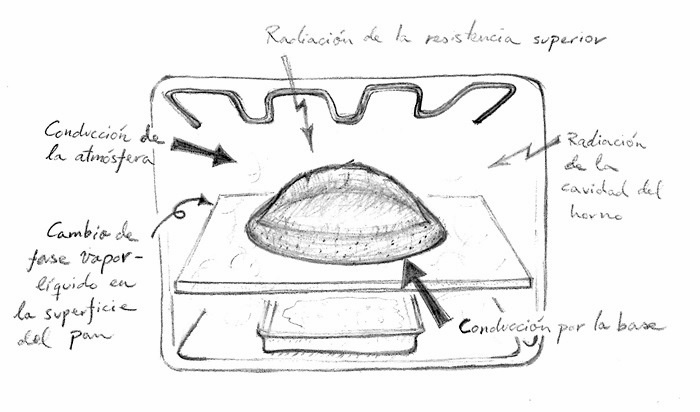 Radiación de la resistencia superior
Conducción de
la atmósfera
Radiación
de la
cavidad del
horno
Cambio de
fase vapor-
líquido en
la superficie
del pan
Conducción por la base